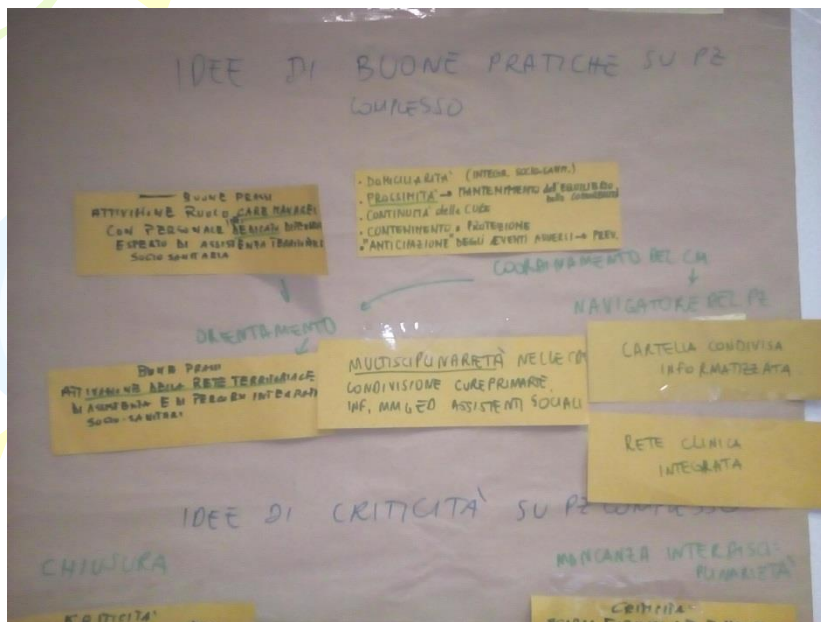 IDEE DI BUONE PRATICHE SU PZ
COMPLESSO
BUONE PRASSI
ATTIVAZIONE RUOLO CARE MANAGER
CON PERSONALE DEDICATO
ESPERTO DI ASSISTENZA TERRITORIALE
SOCIO SANITARIA
• DOMICILIARITA' (INTEGR. SOCIO-SANIT.)
• PROSSIMITÀ → MANTENIMENTO dell'EQUILIBRIO
• CONTINUITÀ delle CURE
• CONTENIMENTO e PROTEZIONE
• "ANTICIPAZIONE" DEGLI EVENTI AVVERSI → PREV.
COORDINAMENTO DEL CM
NAVIGATORE DEL PZ
ORIENTAMENTO
BUONE PRASSI
ATTIVAZIONE DELLA RETE TERRITORIALE
DI ASSISTENZA E DI PERCORSI INTEGRATI
SOCIO-SANITARI
MULTISCIPLINARIETÀ NELLE
CONDIVISIONE CURE PRIMARIE,
INF. MMG ED ASSISTENTI SOCIALI
CARTELLA CONDIVISA
INFORMATIZZATA
RETE CLINICA
INTEGRATA
IDEE DI CRITICITÀ SU PZ COMPLESSO
CHIUSURA
MANCANZA INTERDISCI-
PLINARIETÀ
CRITICITÀ
CRITICITÀ